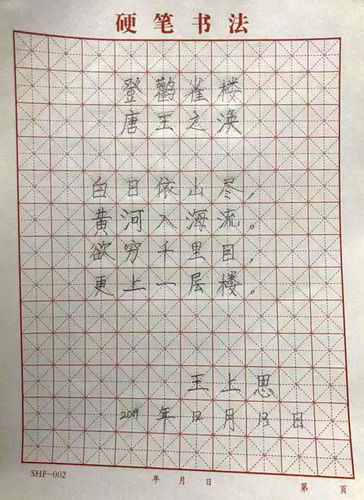 硬笔书法
登鹳雀楼
唐王之涣
白日依山尽，
黄河入海流。
欲穷千里目，
更上一层楼。
王上思
2019年12月13日
SHF-002
年月日
第页